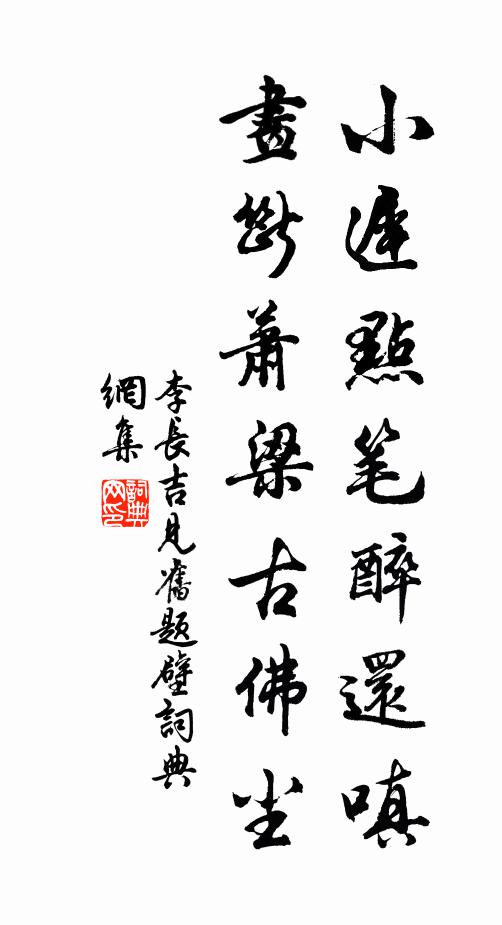 小遲點笔醉還嗔
畫斷蕭梁古佛尘
李長吉见舊题壁詞典
網集
詞典
网印